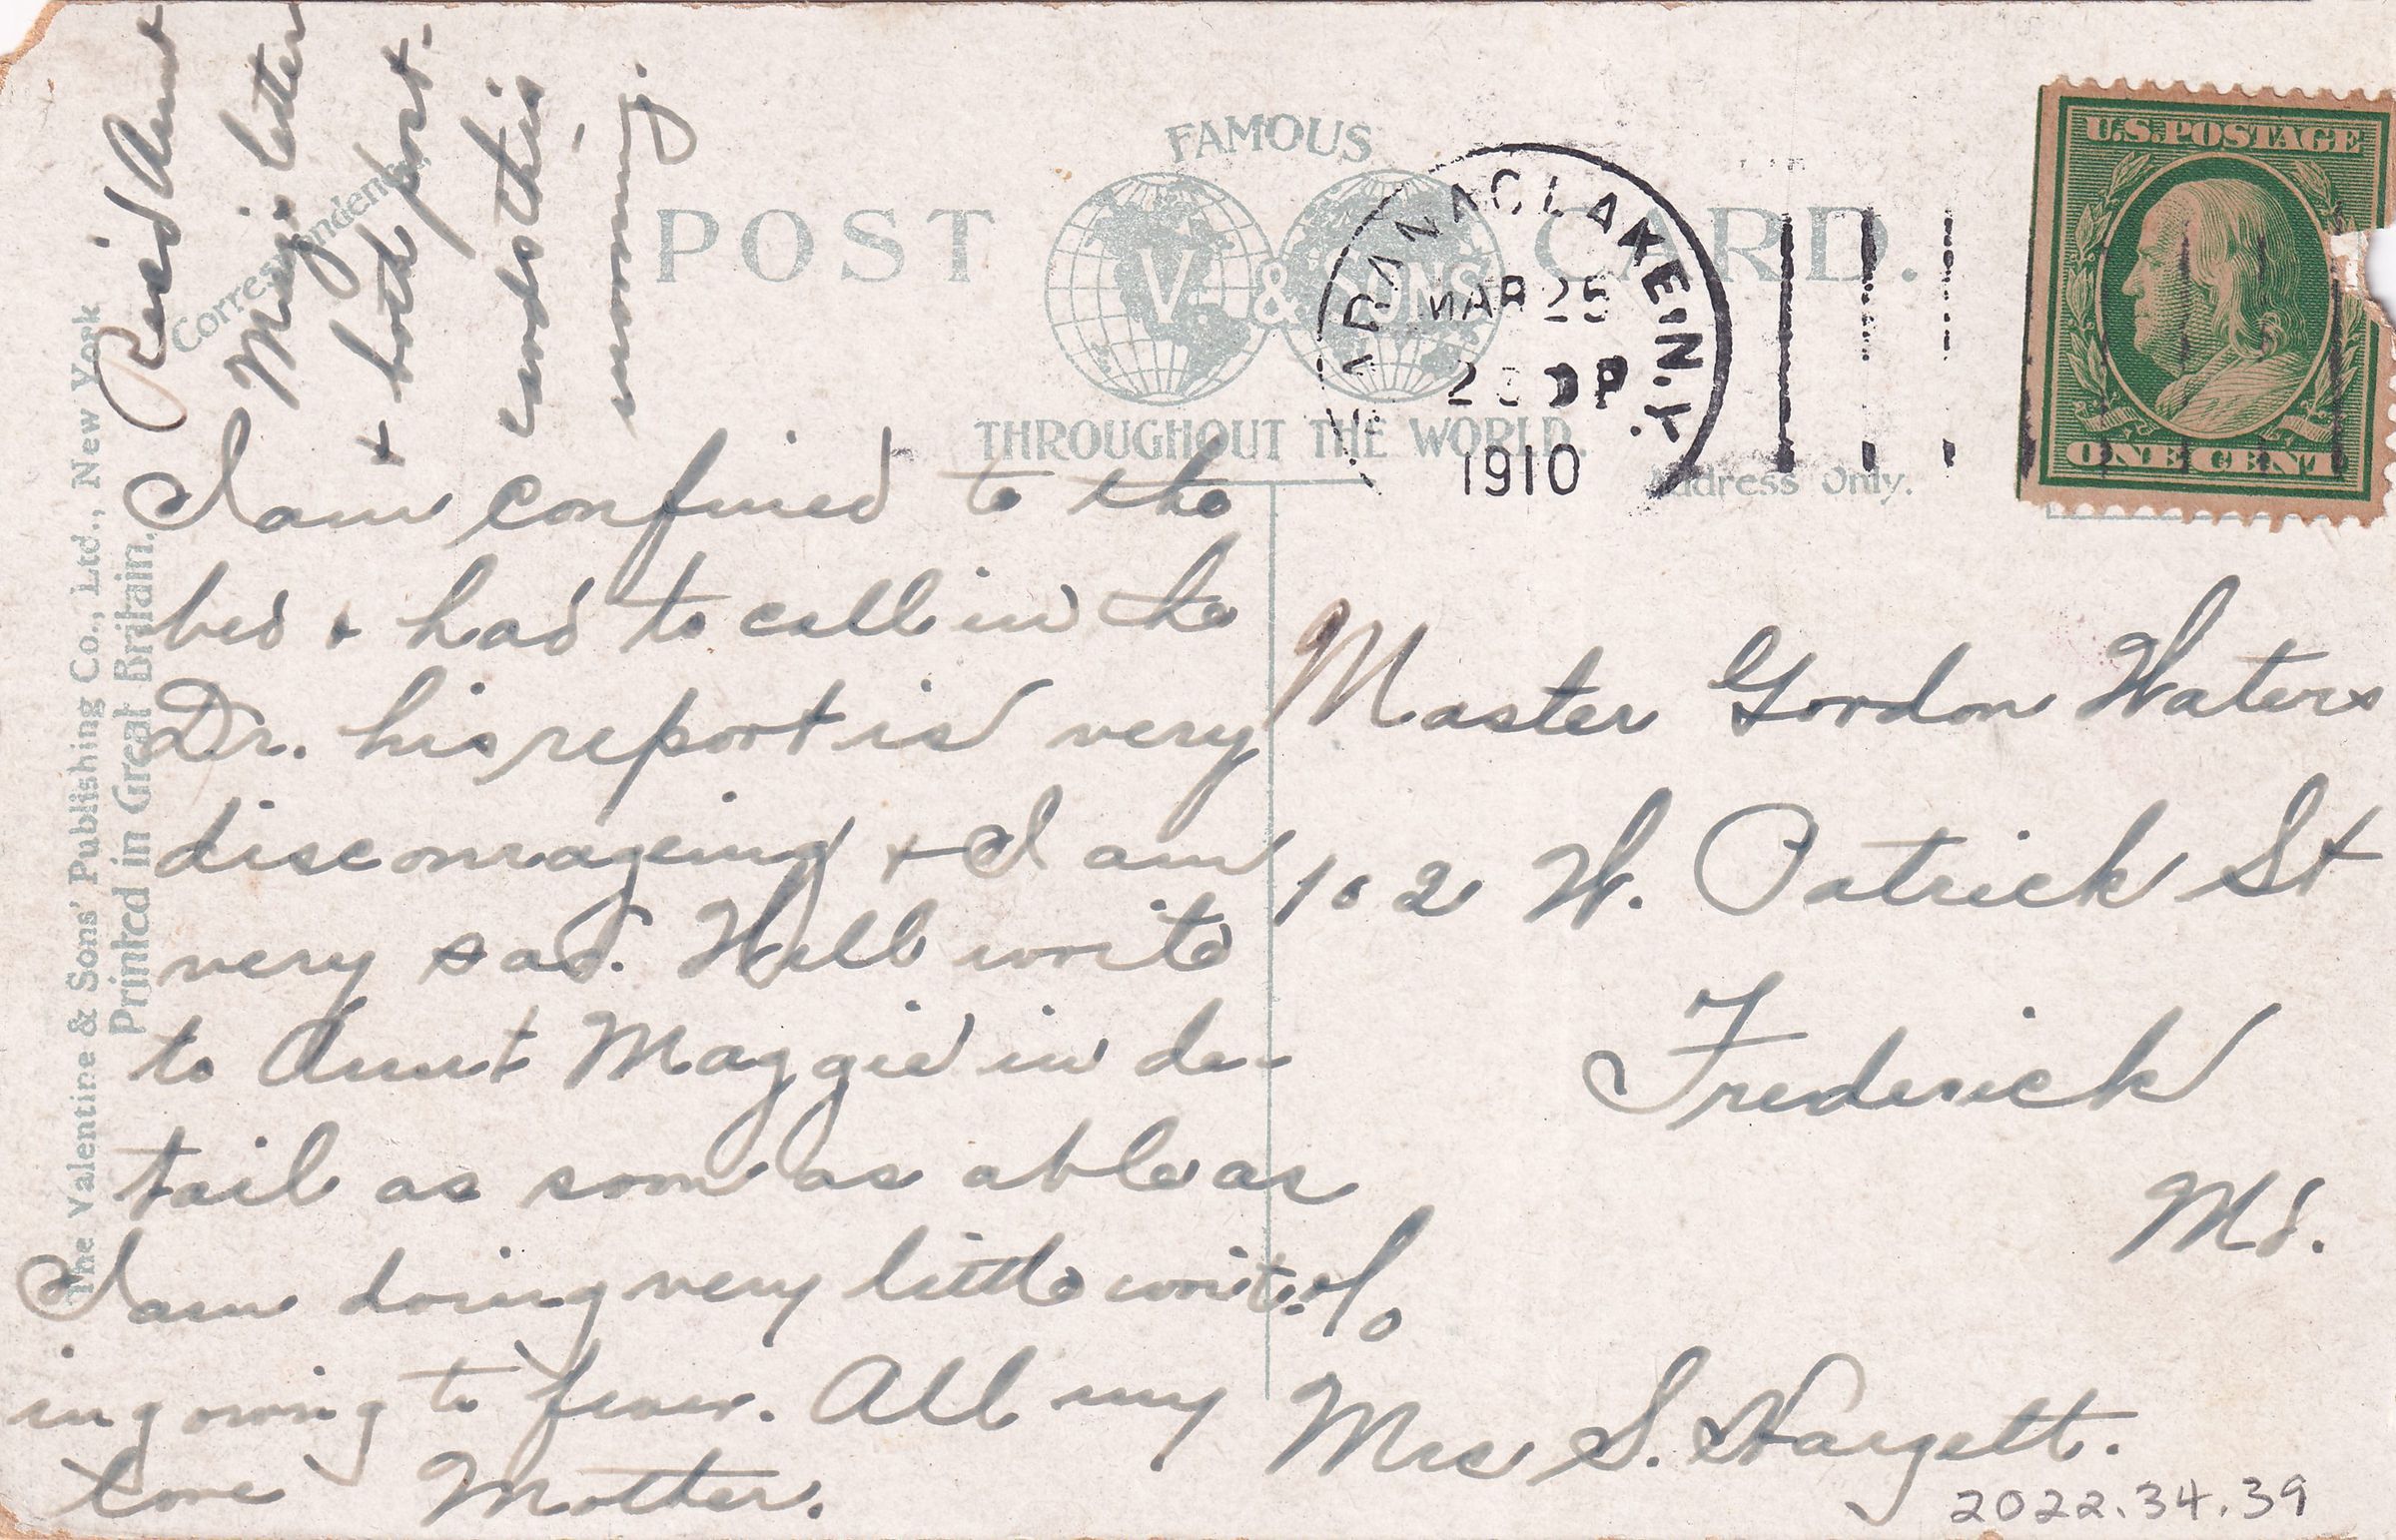 Rec'd Aunt
Mag's letter
& both post-
cards this
morning.
Correspondence.
FAMOUS
POST CARD.
V. & SONS
THROUGHOUT THE WORLD.
Address Only.
SARANAC LAKE. N.Y.
MAR 25
1910
U.S. POSTAGE
ONE CENT
The Valentine & Sons' Publishing Co., Ltd., New York
Printed in Great Britain.
I am confined to the
bed & had to call in the
Dr. his report is very
discourageing & I am
very sad. Will write
to Aunt Maggie in de-
tail as soon as able as
I am doing very little writ-
ing owing to fever. All my
love Mother.
Master Gordon Waters
102 W. Patrick St
Frederick
Md.
c/o
Mrs S. Hargett.
2022.34.39